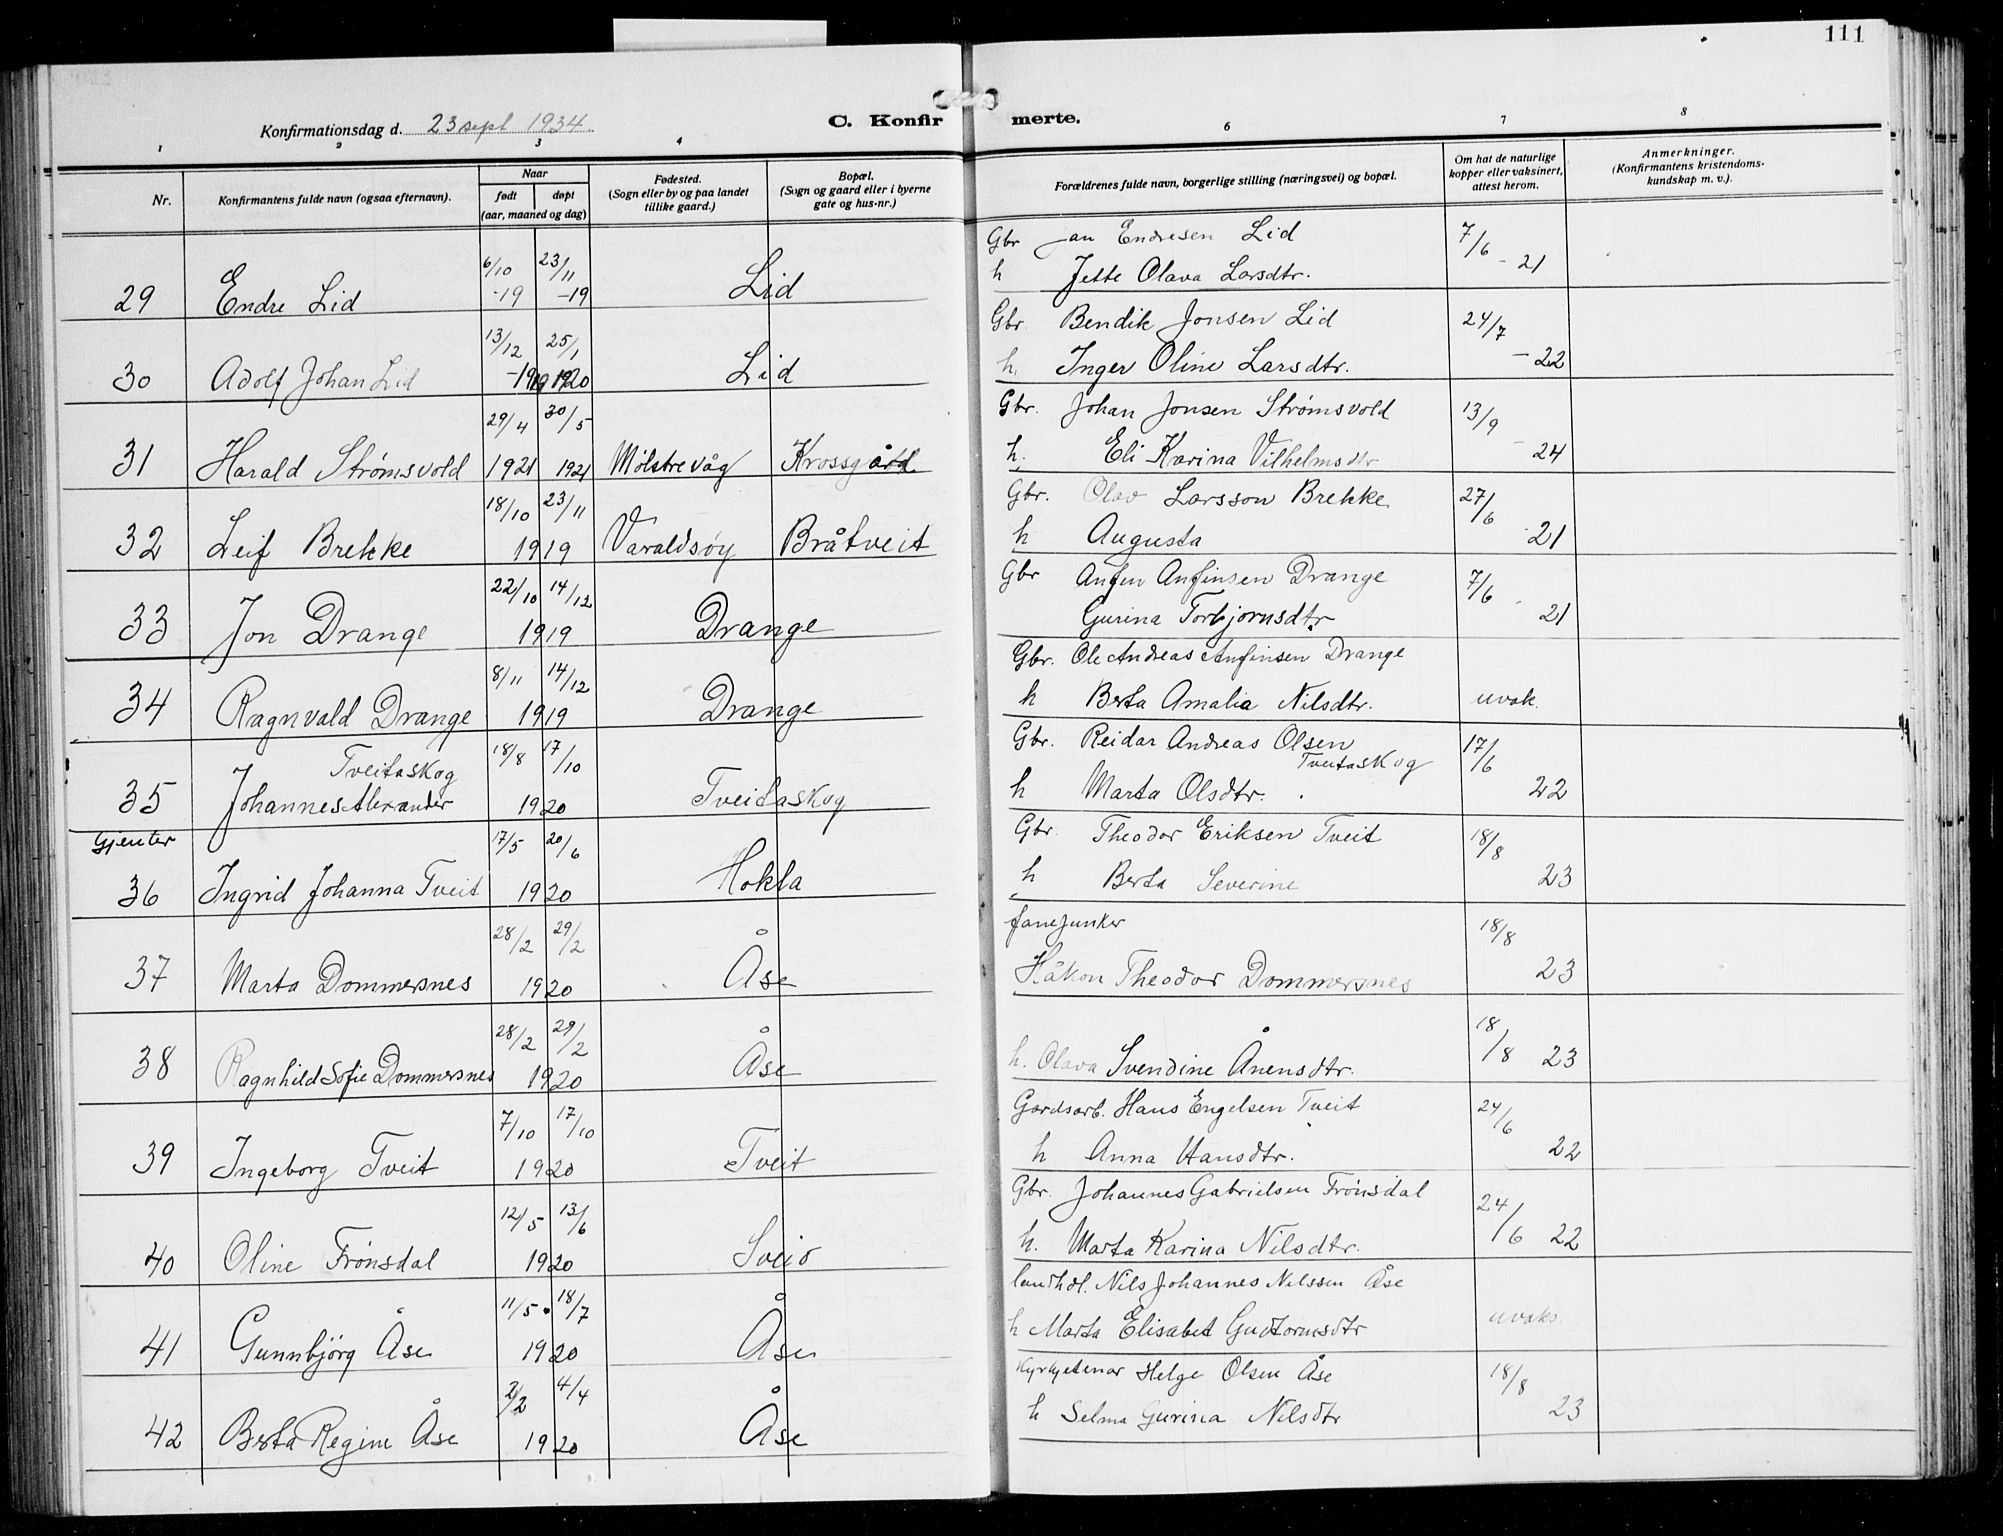 111
Konfirmationsdag d. 23 sept 1934
C. Konfirmerte.
1 2 3 4 6 7 8
Nr.
Konfirmantens fulde navn (ogsaa efternavn).
Naar
født døpt
(aar, maaned og dag)
Fødested.
(Sogn eller by og paa landet
tillike gaard.)
Bopæl.
(Sogn og gaard eller i byerne
gate og hus-nr.)
Forældrenes fulde navn, borgerlige stilling (næringsvei) og bopæl.
Om hat de naturlige
kopper eller vaksinert,
attest herom.
Anmerkninger.
(Konfirmantens kristendoms-
kundskap m. v.).
Gbr Jan Endresen Lid 7/6 -21
29 Endre Lid 6/10 -19 23/11 -19 Lid
h Jette Olava Larsdtr.
Gbr. Bendik Jonsen Lid 24/7 -22
30 Adolf Johan Lid 13/12 -1919 25/1 1920 Lid
h. Inger Oline Larsdtr.
Gbr. Johan Jonsen Strømsvold 13/9 -24
31 Harald Strømsvold 29/4 1921 30/5 1921 Mølstrevåg Krossgård
h. Eli Karina Vilhelmsdtr
Gbr. Olav Larsson Brekke 27/6 21
32 Leif Brekke 18/10 23/11 1919 Varaldsøy Bråtveit
h Augusta
Gbr Anfin Anfinsen Drange 7/6 - 21
33 Jon Drange 22/10 14/12 1919 Drange
Gurina Torbjørnsdtr.
Gbr. Ole Andreas Anfinsen Drange
34 Ragnvald Drange 8/11 14/12 1919 Drange
h Berta Amalia Nilsdtr. uvak.
Gbr. Reidar Andreas Olsen
Tveitaskog 17/6 22
35 Tveitaskog
Johannes Alexander 18/8 17/10 1920 Tveitaskog
h Marta Olsdtr.
Gjenter
Gbr. Theodor Eriksen Tveit 18/8 23
36 Ingrid Johanna Tveit 17/5 20/6 1920 Hokla
h Berta Severine
fanejunker 18/8 23
37 Marta Dommersnes 28/2 29/2 1920 Åse
Håkon Theodor Dommersnes
38 Ragnhild Sofie Dommersnes 28/2 29/2 1920 Åse
h. Olava Svendine Ånensdtr. 18/8 23
Gardsarb. Hans Engelsen Tveit 24/6 22
39 Ingeborg Tveit 7/10 17/10 1920 Tveit
h Anna Hansdtr.
Gbr. Johannes Gabrielsen Frönsdal 24/6 22
40 Oline Frönsdal 12/5 13/6 1920 Sveio
h. Marta Karina Nilsdtr.
landhdl. Nils Johannes Nilssen Åse
41 Gunnbjörg Åse 11/5 18/7 1920 Åse
h Marta Elisabet Gudtormsdtr uvaks.
Kyrkjetenar Helge Olsen Åse 18/8 23
42 Berta Regine Åse 2/2 4/4 1920 Åse
h Selma Gurina Nilsdtr